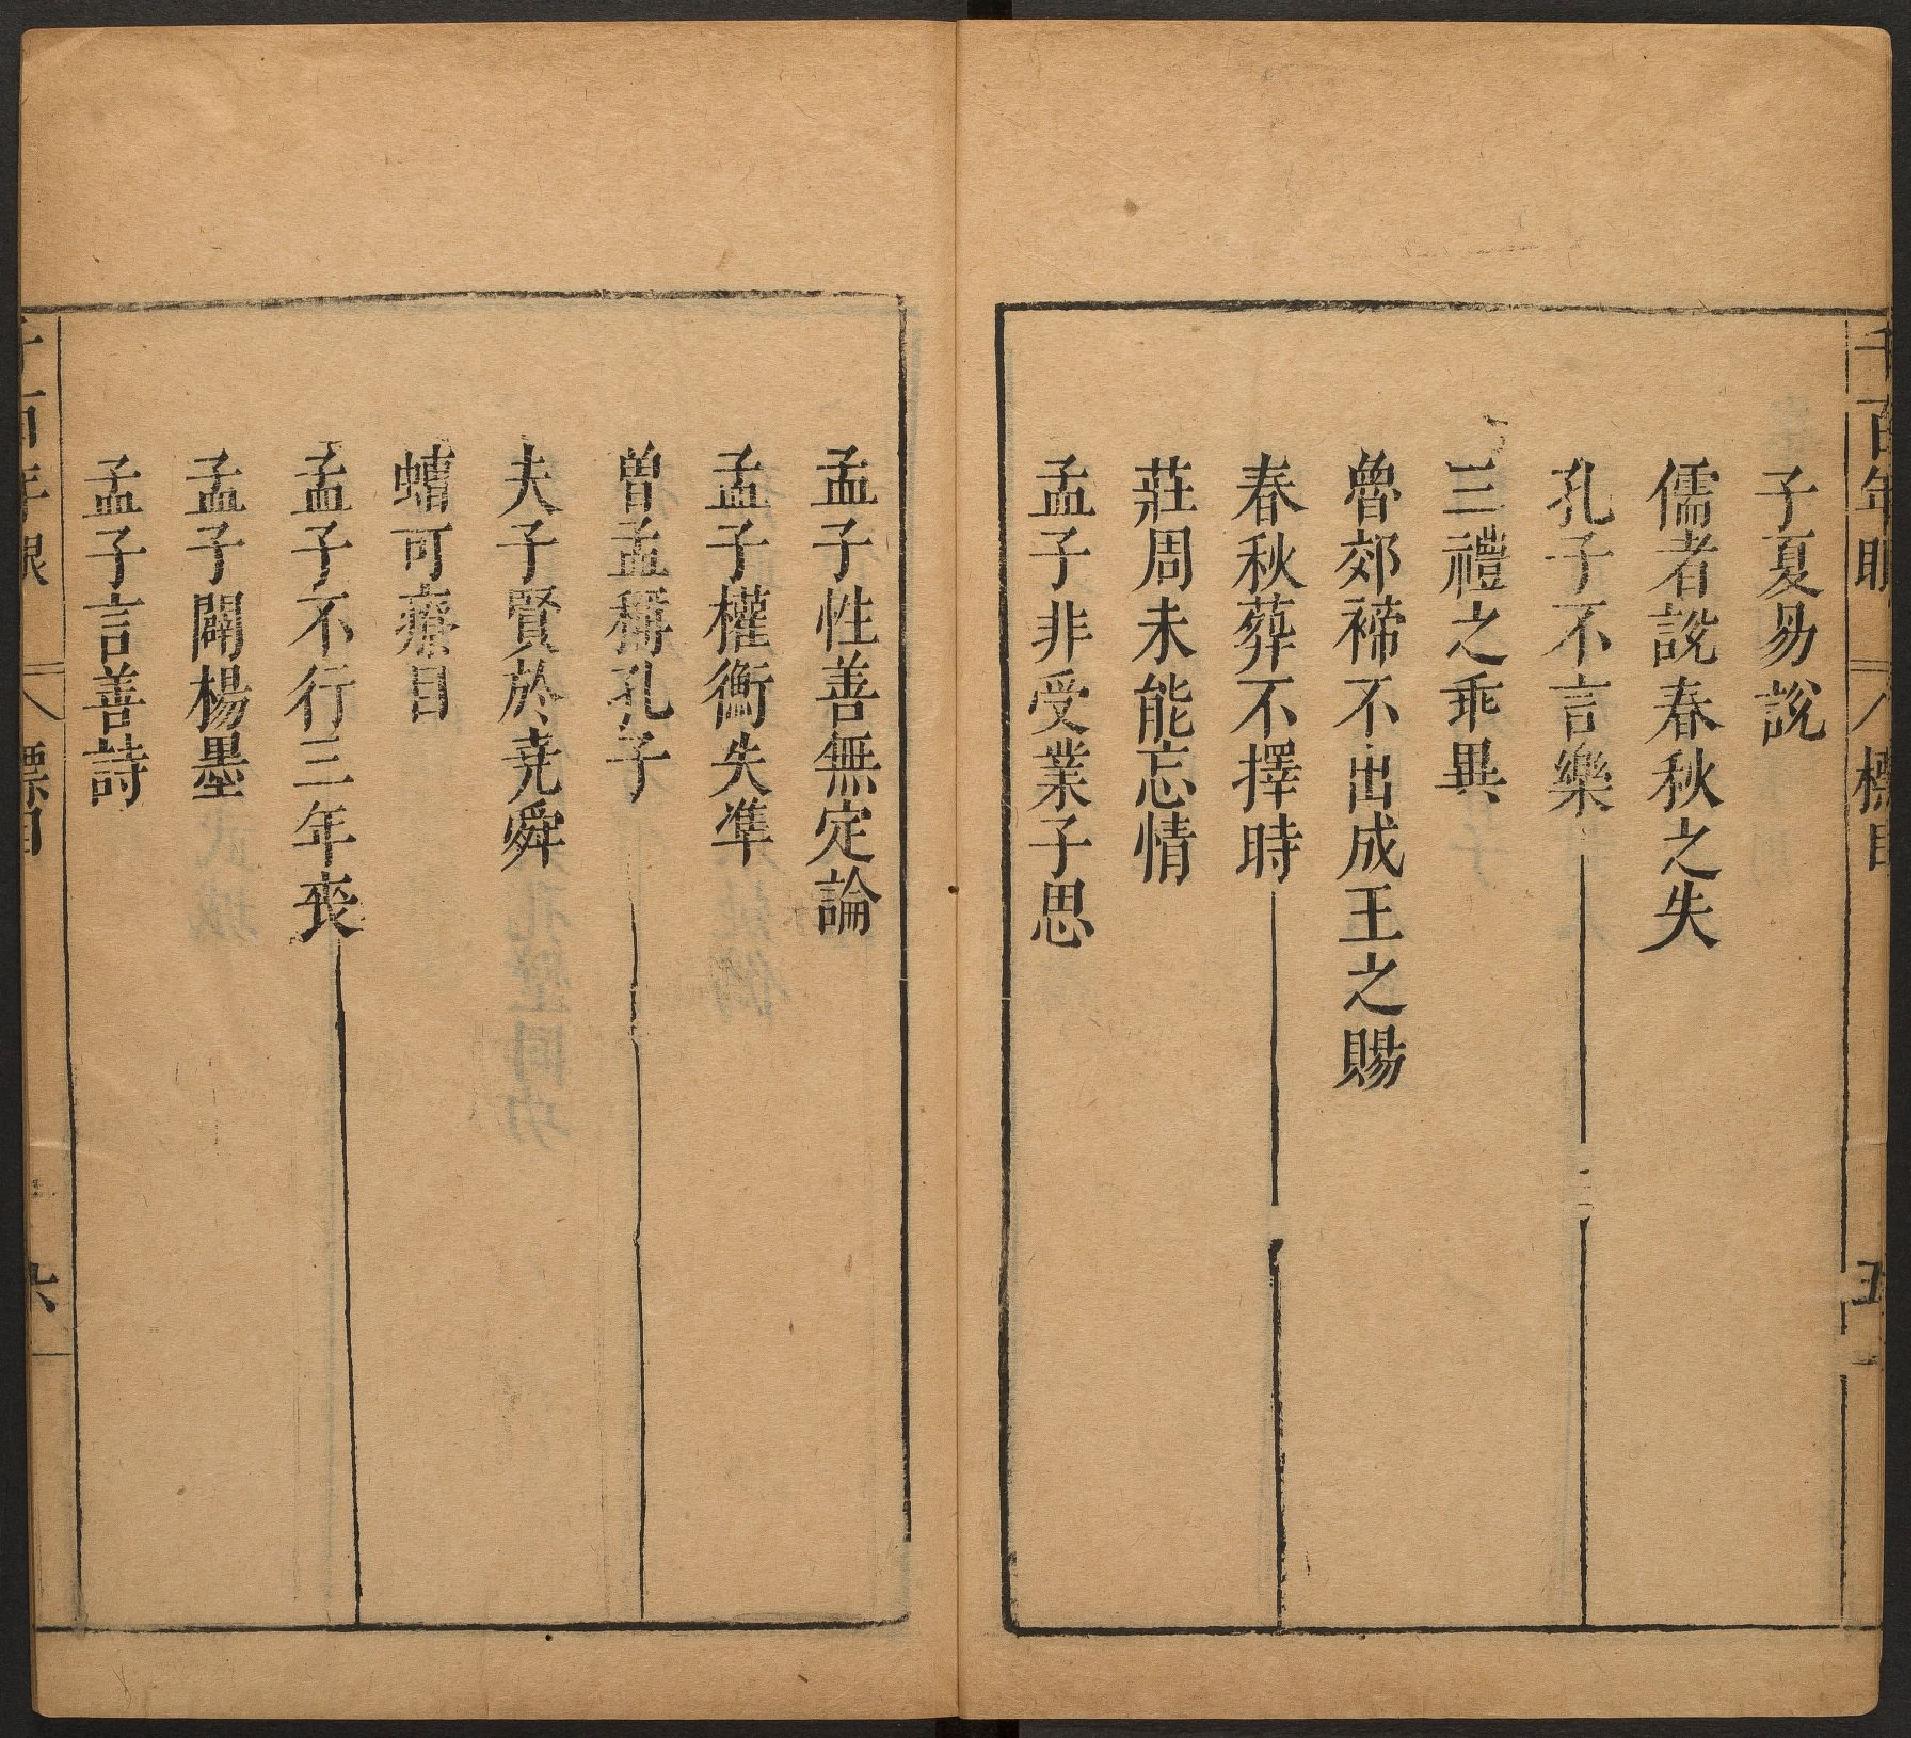 千百年眼 標目 五
子夏易說
儒者說春秋之失
孔子不言樂
三禮之乖異
魯郊禘不出成王之賜
春秋葬不擇時
莊周未能忘情
孟子非受業子思
孟子性善無定論
孟子權衡失準
曾孟稱孔子
夫子賢於堯舜
螬可療目
孟子不行三年喪
孟子闢楊墨
孟子言善詩
千百年眼 標目 六